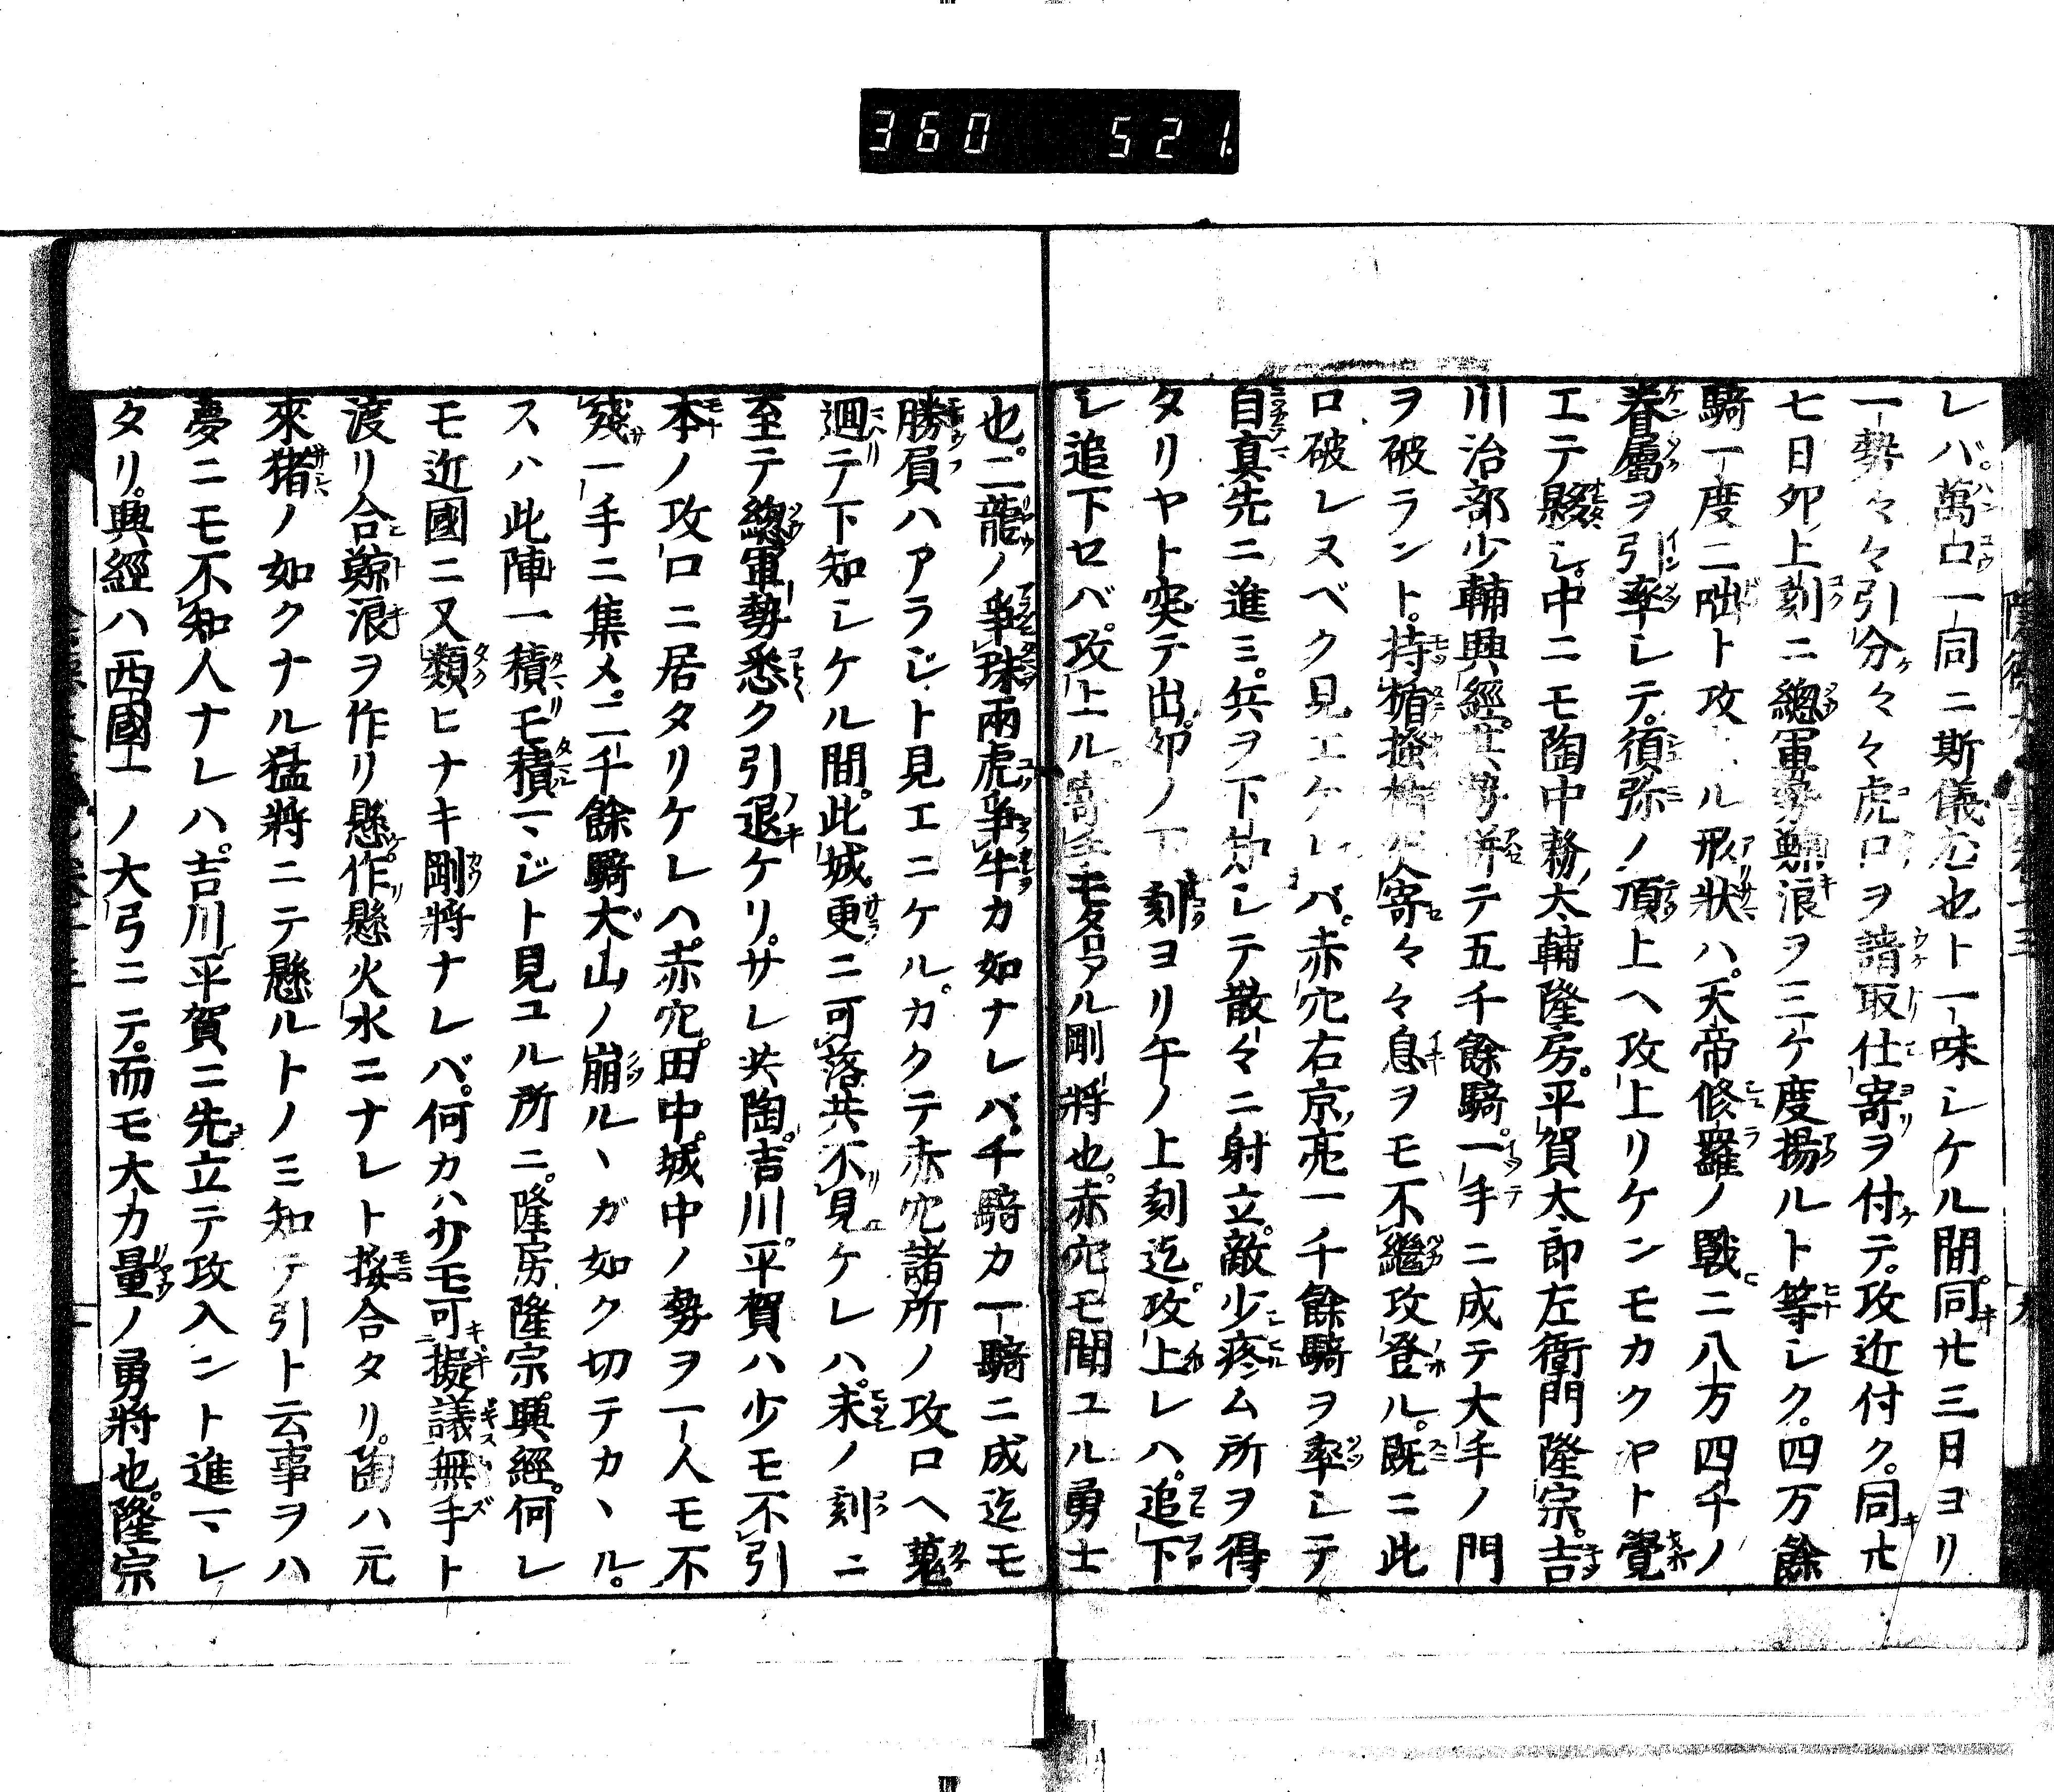 360 521.
レバ。萬口一同ニ斯儀尤也ト一味シケル間。同廿三日ヨリ
一勢々々引分々々虎口ヲ請取仕寄ヲ付テ。攻近付ク。同廿
七日卯ノ上刻ニ總軍勢鯨浪ヲ三ケ度揚ルト等シク。四万餘
騎一度ニ咄ト攻上ル形狀ハ。天帝修羅ノ戰ニ八万四千ノ
眷屬ヲ引率シテ。須弥ノ頂上ヘ攻上リケンモカクヤト覺
エテ夥シ。中ニモ陶中務太輔隆房。平賀太郎左衛門隆宗。吉
川治部少輔興經。其勢併テ五千餘騎。一手ニ成テ大手ノ門
ヲ破ラント。持楯掻楯突寄々々息ヲモ不継攻登ル。既ニ此
口破レヌベク見エケレバ。赤穴右京亮一千餘騎ヲ率シテ
自真先ニ進ミ。兵ヲ下知シテ散々ニ射立。敵少疼ム所ヲ得
タリヤト突テ出。卯ノ下刻ヨリ午ノ上刻迄。攻上レハ。追下
シ追下セバ。攻上ル。寄手モ名アル剛將也。赤穴モ聞ユル勇士
也。二龍ノ爭珠兩虎爭牛カ如ナレバ。千騎カ一騎ニ成迄モ
勝負ハアラジト見エニケル。カクテ赤穴諸所ノ攻口ヘ蒐
廻テ下知シケル間。此城更ニ可落共不見ケレハ。未ノ刻ニ
至テ總軍勢悉ク引退ケリ。サレ共陶。吉川。平賀ハ少モ不引
本ノ攻口ニ居タリケレハ。赤穴。田中。城中ノ勢ヲ一人モ不
殘一手ニ集メ。二千餘騎大山ノ崩ルヽガ如ク切テカヽル。
スハ此陣一積モ積マジト見ユル所ニ。隆房隆宗。興經。何レ
モ近國ニ又類ヒナキ剛將ナレバ。何カハ少モ可擬議無手ト
渡リ合鯨浪ヲ作リ懸作懸火水ニナレト接合タリ。陶ハ元
來猪ノ如クナル猛將ニテ懸ルトノミ知テ引ト云事ヲハ
夢ニモ不知人ナレハ。吉川平賀ニ先立テ攻入ント進マレ
タリ。興經ハ西國一ノ大弓ニテ。而モ大力量ノ勇將也。隆宗